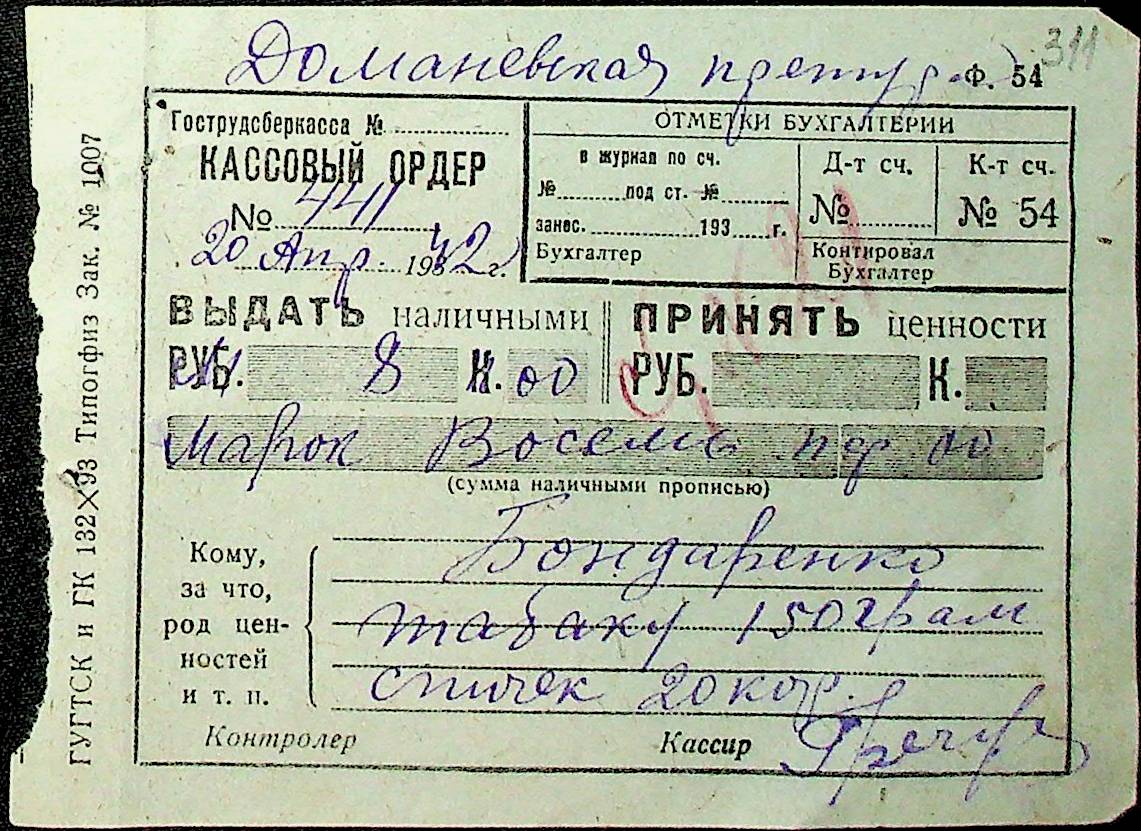 311
Доманевская претура Ф. 54
Гострудсберкасса №
КАССОВЫЙ ОРДЕР
№ 441
20 Апр. 1942 г.
ОТМЕТКИ БУХГАЛТЕРИИ
в журнал по сч.
№ под ст. №
занес. 193 г.
Бухгалтер
Д-т сч.
№
К-т сч.
№ 54
Контировал
Бухгалтер
ВЫДАТЬ наличными
РУБ. 8 К. 00
ПРИНЯТЬ ценности
РУБ. К.
Марок Восемь пф 00
(сумма наличными прописью)
Кому,
за что,
род цен-
ностей
и т. п.
Бондаренко
табаку 150 грам
спичек 20 кор.
Контролер Кассир
ГУГТСК и ГК 132×93 Типогофиз Зак. № 1007